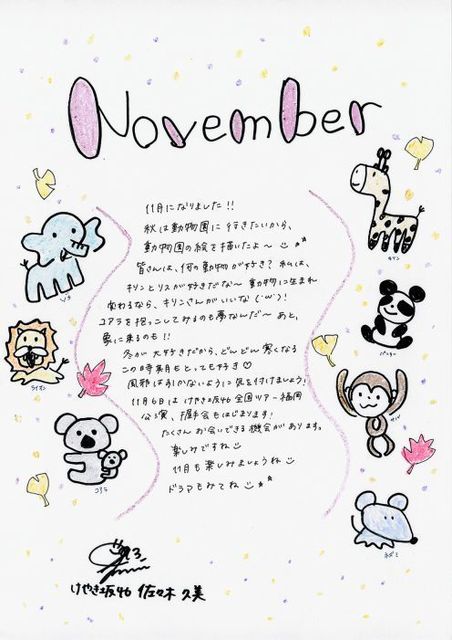 November
11月になりました!!
秋は動物園に行きたいから、
動物園の絵を描いたよ〜
皆さんは、何の動物が好き? 私は、
キリンとリスが好きだな〜 動物に生まれ
変わるなら、キリンさんがいいな(´ω`)!
コアラを抱っこしてみるのも夢なんだ〜 あと、
象に乗るのも!!
冬が大好きだから、どんどん寒くなる
この時期もとっても好き♡
風邪はひかないように気を付けましょう!
11月6日は けやき坂46 全国ツアー福岡
公演、握手会もはじまります!
たくさんお会いできる機会があります。
楽しみですね
11月も楽しみましょうね
ドラマもみてね
ゾウ
ライオン
コアラ
キリン
パンダ
サル
ネズミ
けやき坂46 佐々木 久美